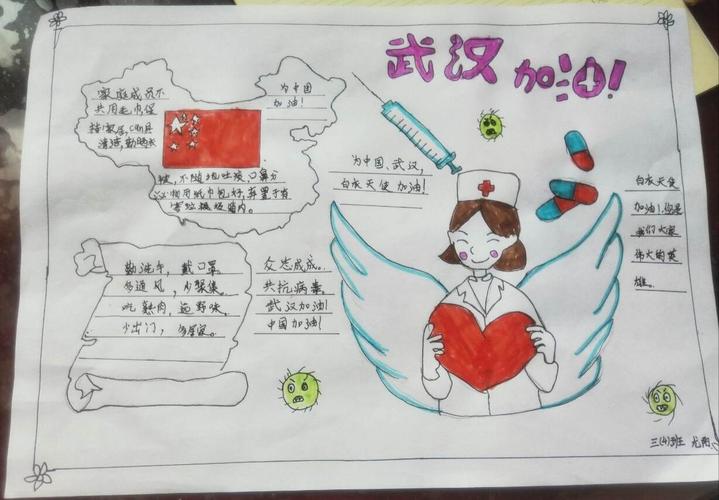 武汉 加油!
家庭成员不
共用毛巾保
持家居、餐具
清洁,勤晒衣
被,不随地吐痰,口鼻分
泌物用纸巾包好,弃置于有
害垃圾箱内。
为中国
加油!
为中国、武汉,
白衣天使 加油!
白衣天使
加油!你是
我们大家
伟大的英
雄。
勤洗手,戴口罩,
多通风,少聚集,
吃熟肉,远野味,
少出门,多居家。
众志成城。
共抗病毒,
武汉加油!
中国加油!
三(4)班